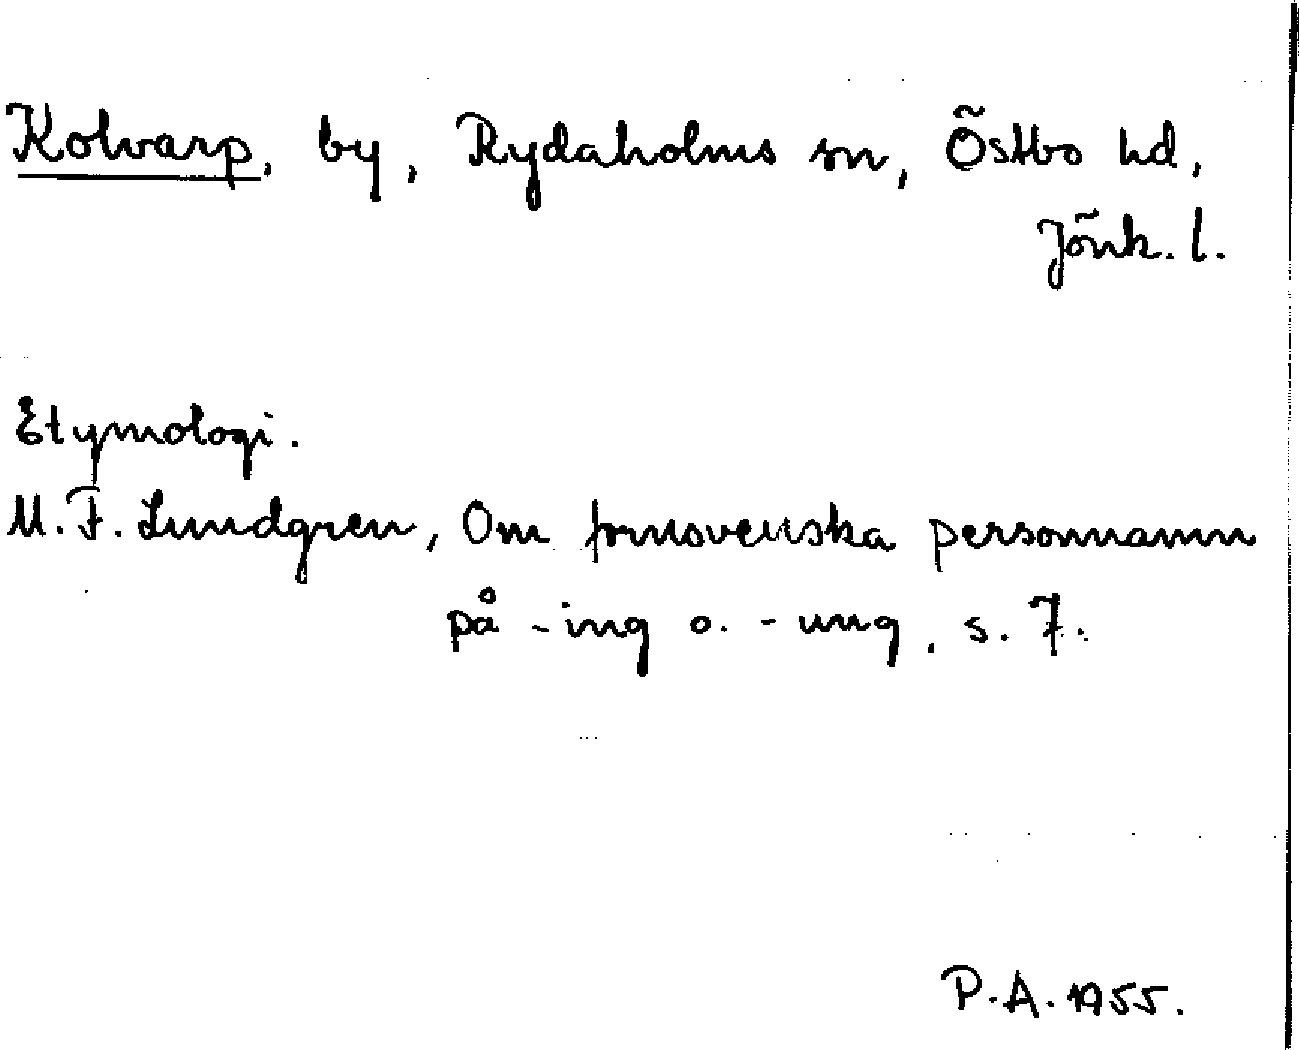 Kolvarp, by, Rydaholms sn, Östbo hd,
Jönk. l.
Etymologi.
M. F. Lundgren, Om fornsvenska personnamn
på -ing o. -ung, s. 7.
P. A. 1955.